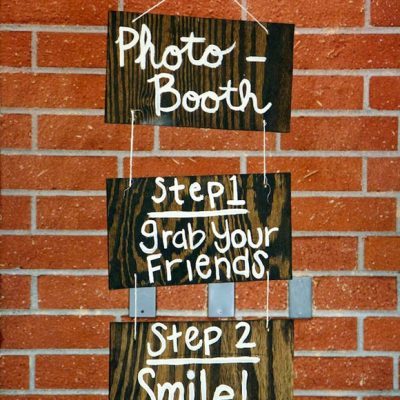 Photo -
Booth
Step 1
grab your
Friends
Step 2
Smile!